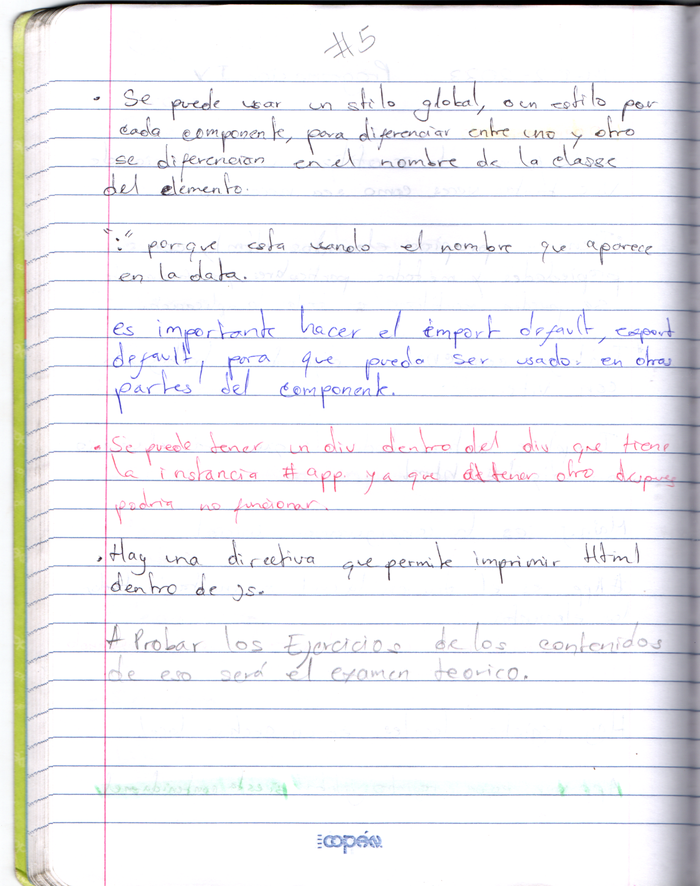 #5
. Se puede usar un stilo global, o un estilo por
cada componente, para diferenciar entre uno y otro
se diferencian en el nombre de la classe
del elemento.
":" porque esta usando el nombre que aparece
en la data.
es importante hacer el import default, export
default, para que pueda ser usado. en otras
partes del componente.
. Se puede tener un div dentro del div que tiene
la instancia #app. ya que tener otro despues
podria no funcionar.
. Hay una directiva que permite imprimir Html
dentro de js.
A Probar los Ejercicios de los contenidos
de eso será el examen teorico.
copán